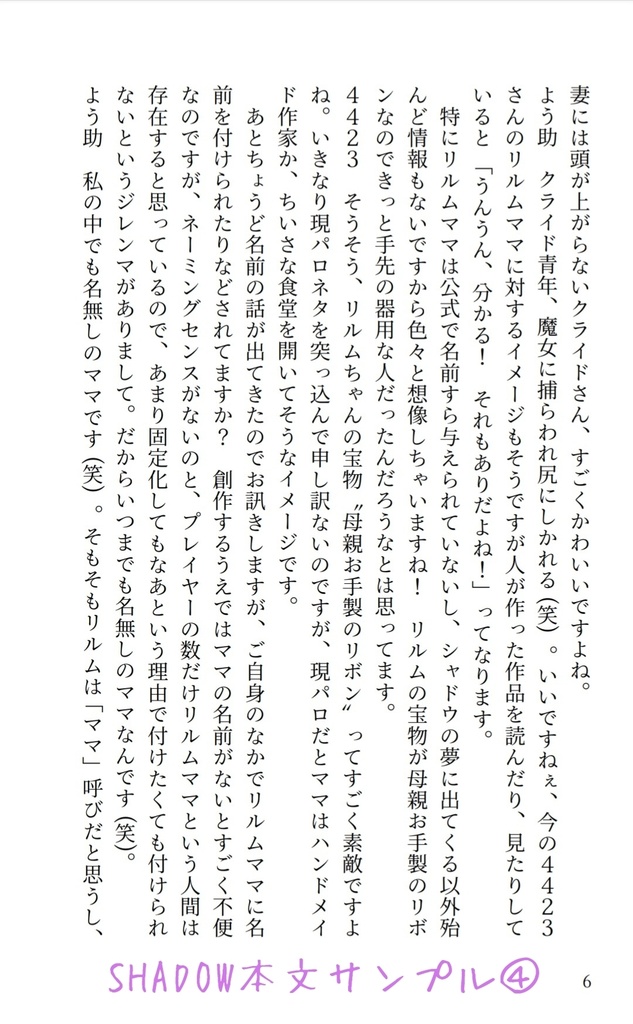 妻には頭が上がらないクライドさん、すごくかわいいですよね。
よう助　クライド青年、魔女に捕らわれ尻にしかれる（笑）。いいですねぇ、今の４４２３
さんのリルムママに対するイメージもそうですが人が作った作品を読んだり、見たりして
いると「うんうん、分かる！　それもありだよね！」ってなります。
　特にリルムママは公式で名前すら与えられていないし、シャドウの夢に出てくる以外殆
んど情報もないですから色々と想像しちゃいますね！　リルムの宝物が母親お手製のリボ
ンなのできっと手先の器用な人だったんだろうなとは思ってます。
４４２３　そうそう、リルムちゃんの宝物〝母親お手製のリボン〟ってすごく素敵ですよ
ね。いきなり現パロネタを突っ込んで申し訳ないのですが、現パロだとママはハンドメイ
ド作家か、ちいさな食堂を開いてそうなイメージです。
　あとちょうど名前の話が出てきたのでお訊きしますが、ご自身のなかでリルムママに名
前を付けられたりなどされてますか？　創作するうえではママの名前がないとすごく不便
なのですが、ネーミングセンスがないのと、プレイヤーの数だけリルムママという人間は
存在すると思っているので、あまり固定化してもなあという理由で付けたくても付けられ
ないというジレンマがありまして。だからいつまでも名無しのママなんです（笑）。
よう助　私の中でも名無しのママです（笑）。そもそもリルムは「ママ」呼びだと思うし、
SHADOW本文サンプル④
6